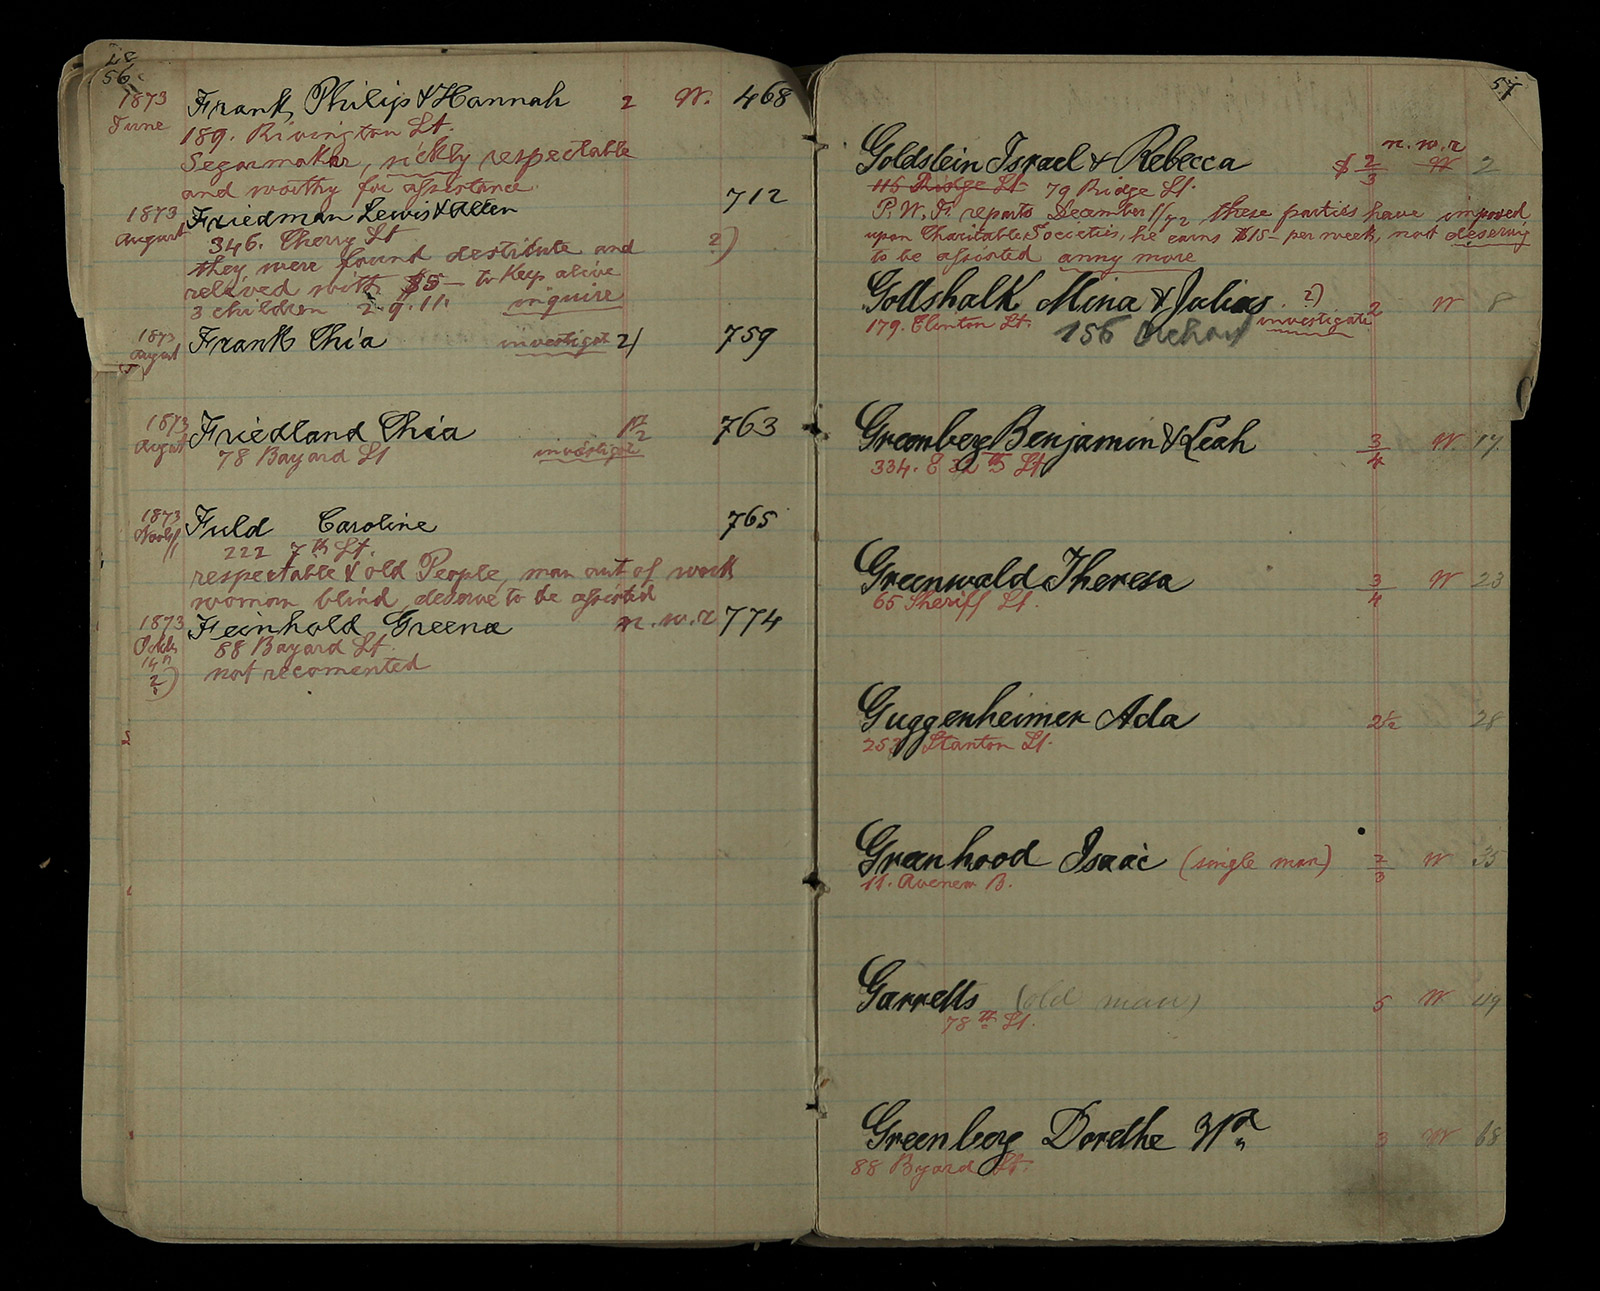 56
1873 Frank, Philip & Hannah 2 W. 468
June 189. Rivington St.
Segarmaker, sickly respectable
and worthy for assistance.
1873 Friedman Lewis & Ellen 712
August 346. Cherry St 2)
they were found destitute and
releved with $5— to keep alive
3 children 2. 9. 11. inquire
1873 Frank Chia investigat 2) 759
August
1873 Friedland Chia 763
August 78 Bayard St investigat
1873 Fuld Caroline 765
222 7th St.
respectable & old People, man out of work
woman blind, deserve to be assisted
1873 Feinhold Greena n. w. r 774
88 Bayard St.
2) not recomented
57
n. w. r
Goldstein Israel & Rebecca $ 2/3 W 2
116 Ridge St 79 Ridge St.
P. W. F. reports December 11/72 these parties have imposed
upon Charitable Societies, he earns $15— per week, not deserving
to be assisted anny more
Gottshalk Mina & Julius 2) 2 W 8
179. Clinton St. investigate
156 Orchard
Greenberg Benjamin & Leah 3/4 W. 17.
334. E 32th St
Greenwald Theresa 3/4 W 23
65 Sheriff St.
Guggenheimer Ada 2½ 28
253 Stanton St.
Greenhood Isaac (single man) 2/3 W 35
11. Avenew B.
Garretts (old man) 5 W 49
78th St.
Greenberg Dorethe Wd 3 W 68
88 Byard St.